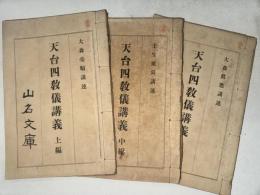 大森亮順講述
天台四敎儀講義 上編
山名文庫
天台四敎儀講義 中編
講述
天台四敎儀講義